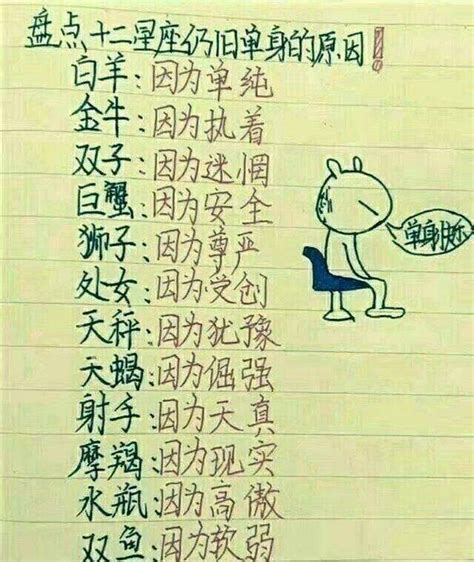 盘点十二星座仍旧单身的原因!!!
白羊:因为单纯
金牛:因为执着
双子:因为迷惘
巨蟹:因为安全
狮子:因为尊严
处女:因为受创
天秤:因为犹豫
天蝎:因为倔强
射手:因为天真
摩羯:因为现实
水瓶:因为高傲
双鱼:因为软弱
单身